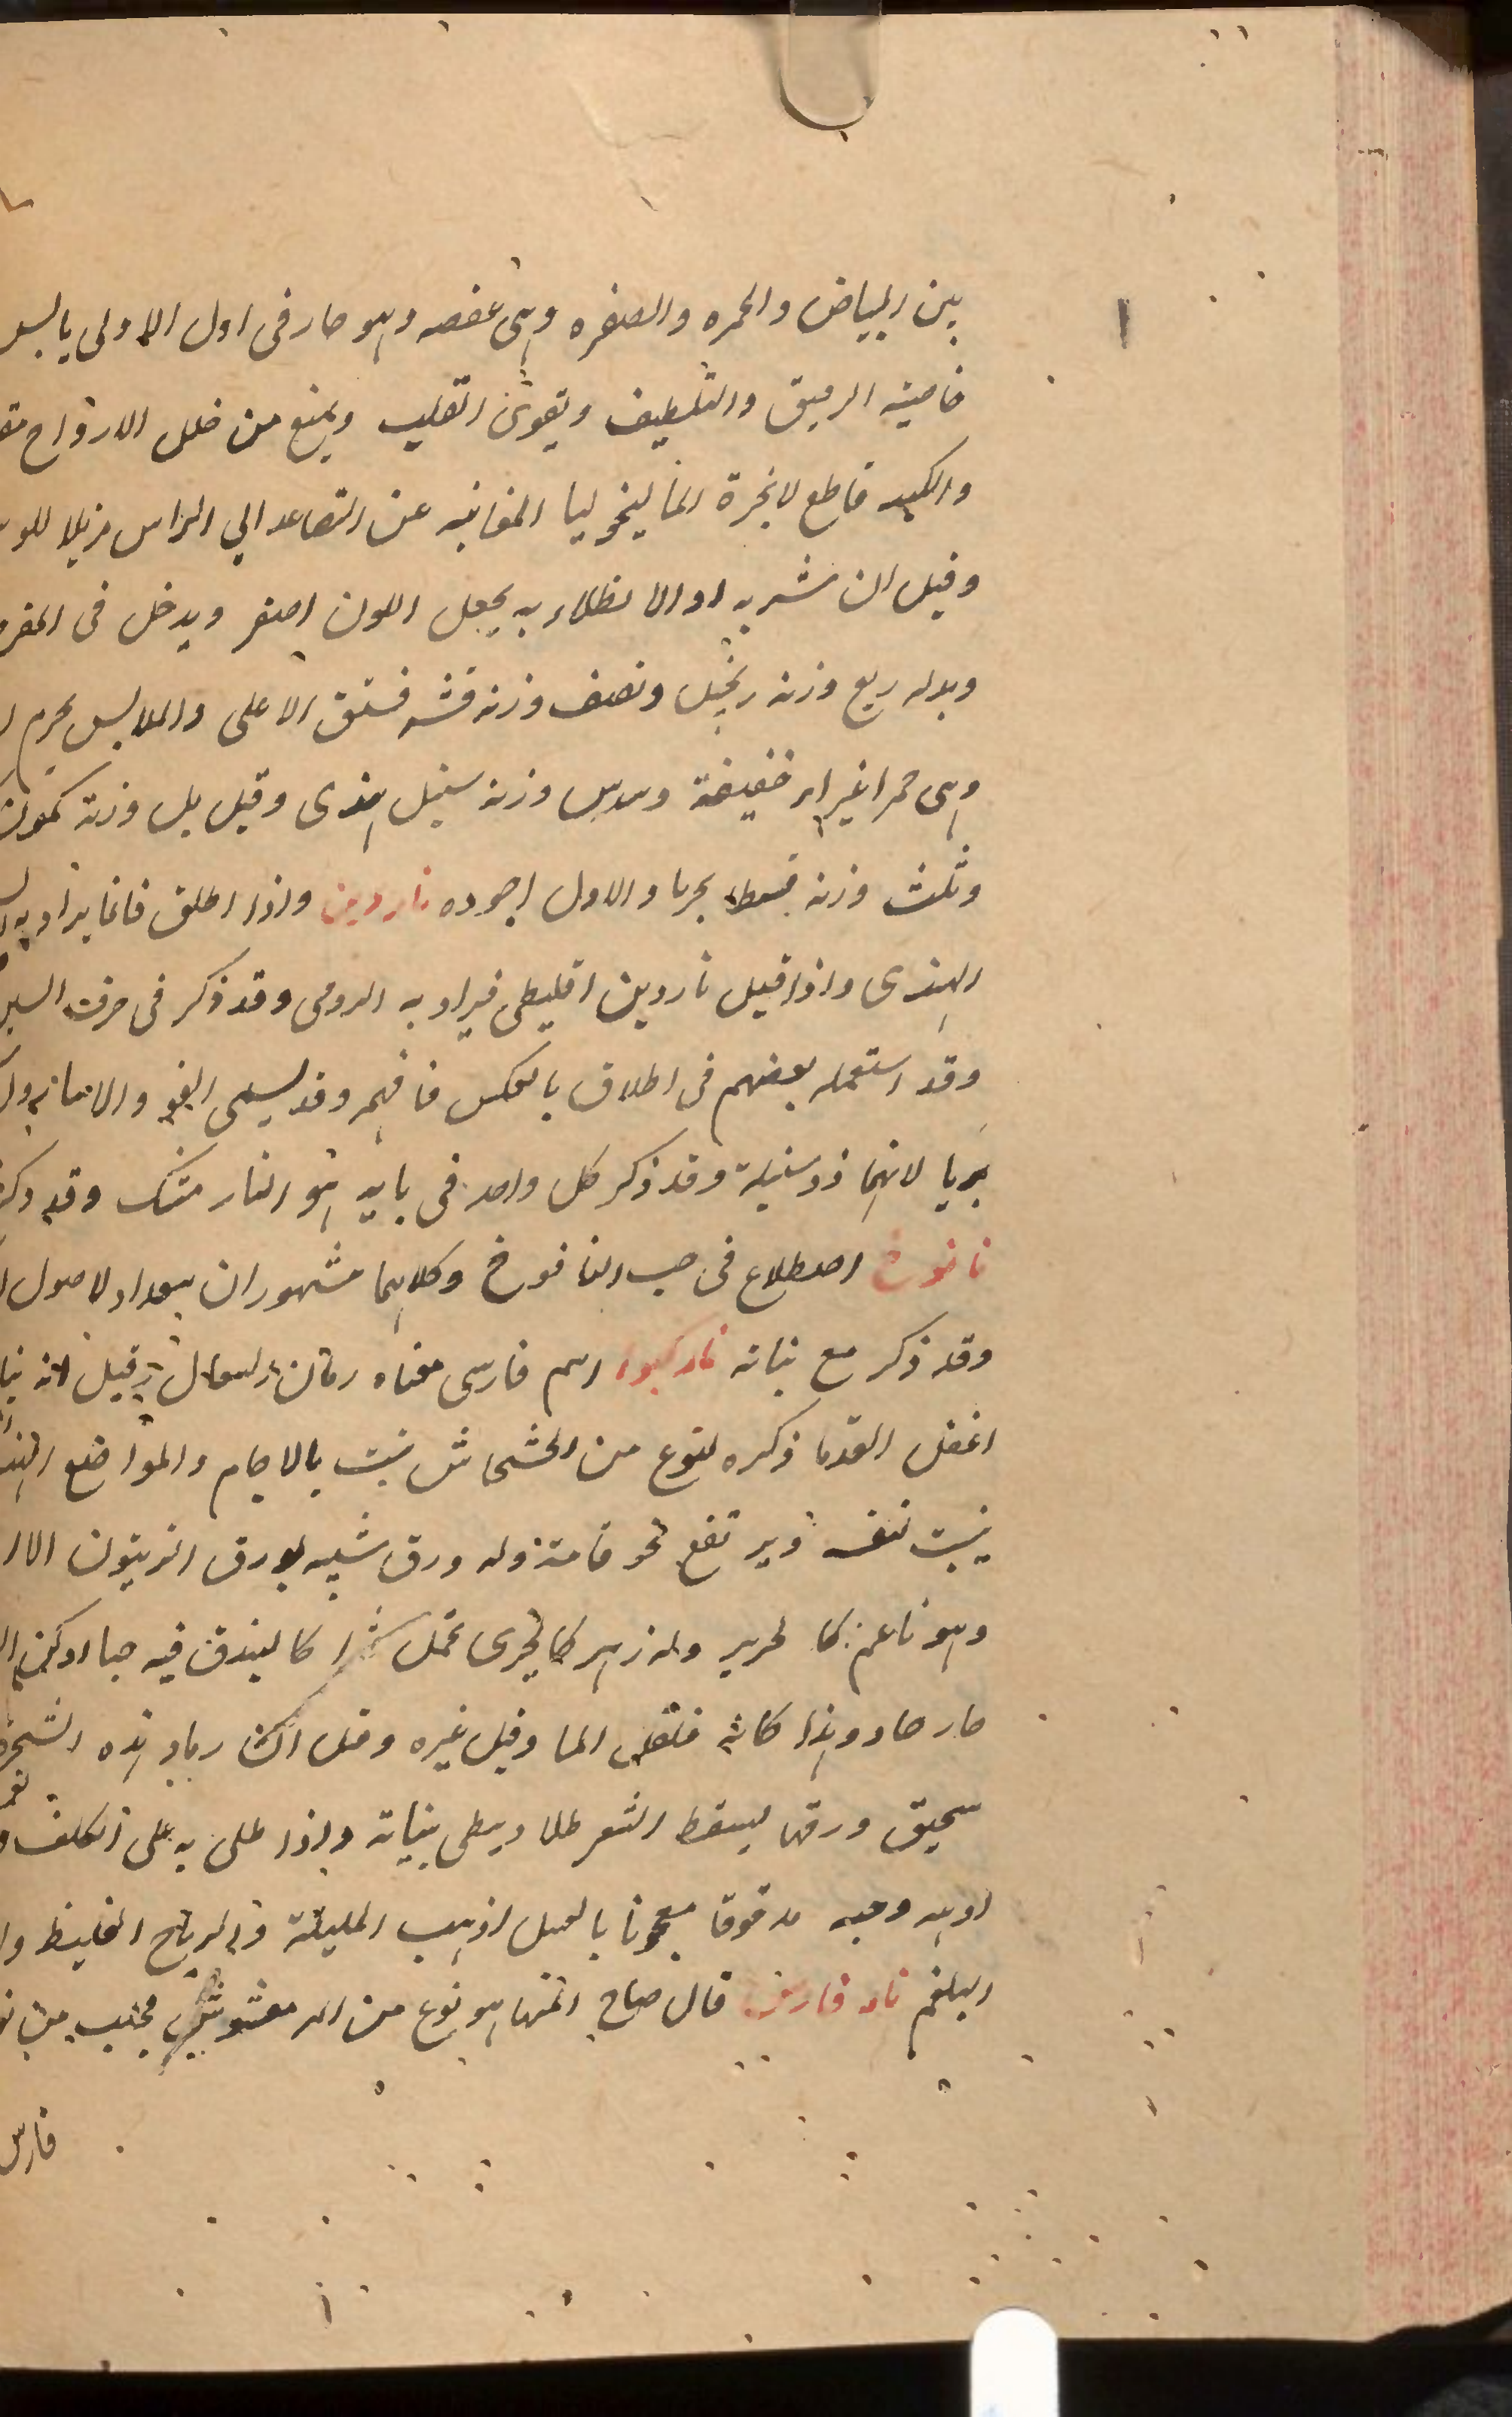 بين البياض والحمره والصفره وهى عفصه وهو حار فى اول الاولى يابس
خاصيته الرميق والتلطيف ويقوى القلب ويمنع من خلل الارواح
والكبد قاطع لابخرة الماليخوليا المغانيه عن التصاعد الى الراس مزيلا
وقيل ان شربه او الانطلاء به يجعل اللون اصفر ويدخل فى
وبدله ربع وزنه زنجبيل ونصف وزنه قشر فستق الاعلى والملابس بحرم
وهى حمر اغير خفيفة وسدس وزنه سنبل هندى وقيل بل وزنه كمون
وثلث وزنه قسط بحريا والاول اجوده ناردين واذا اطلق فانما يراد به
الهندى واذا قيل ناردين اقليطى فيراد به الرومى وقد ذكر فى حرف
وقد استعمله بعضهم فى اطلاق بالعكس فافهم وقد يسمى الفو والاسارون
بريا لانهما ذو سنبلة وقد ذكر كل واحد فى بابه هو النار مشك وقد ذكر
نانوخ اصطلاح فى حب النانوخ وكلاهما مشهوران ببعداد لاصول
وقد ذكر مع نباته ناركيوا اسم فارسى معناه رمان السعال قيل انه
اغفل القدما ذكره لنوع من الخشخاش ينبت بالاجام والمواضع
ينبت نفسه ويرتفع نحو قامة وله ورق شبيه بورق الزيتون الا
وهو ناعم كالحرير وله زهر كالخيرى يحمل ثمرا كالبندق فيه حبا
حار حاد وهذا كاثه فلفل الما وقيل غيره وقيل ان رماد هذه الشجره
سحيق ورقها يسقط الشعر طلا ويبطى بنباته واذا طلى به على الكلف
اوهيه وحبه مدقوقا معجونا بالعسل اذهب المليلة والرياح الغليظ
البلغم نار فارس قال صاحب المنهاج هو نوع من الدر مجتلب من
فارس